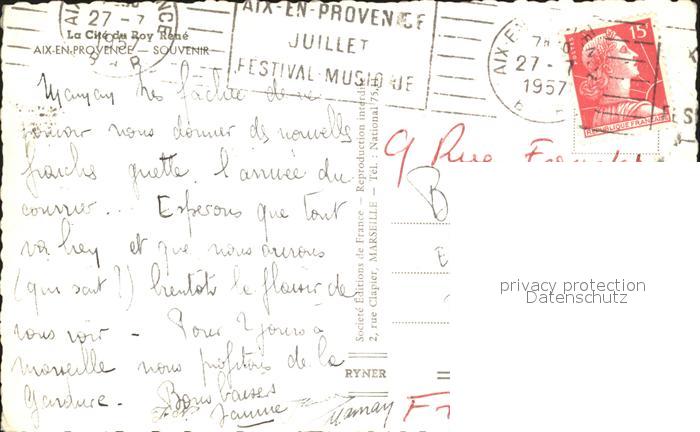 27-7
La Cité du Roy René
AIX-EN-PROVENCE — SOUVENIR
AIX-EN-PROVENCE
JUILLET
FESTIVAL-MUSIQUE
AIX-E
27-7
1957
15F
REPUBLIQUE FRANCAISE
Mamay très fâchée de ne
pouvoir nous donner de nouvelles
fraiches guette l'arrivée du
courrier... Esperons que tout
va bien et que nous aurons
(qui sait?) bientôt le plaisir de
vous voir - Pour 2 jours à
marseille nous profitons de la
Gardure. Bons baisers
Jannie Mamay
Société Editions de France - Reproduction interdite
2, rue Clapier, MARSEILLE - Tél. : National 75
RYNER
9 Rue
B
E
F
privacy protection
Datenschutz